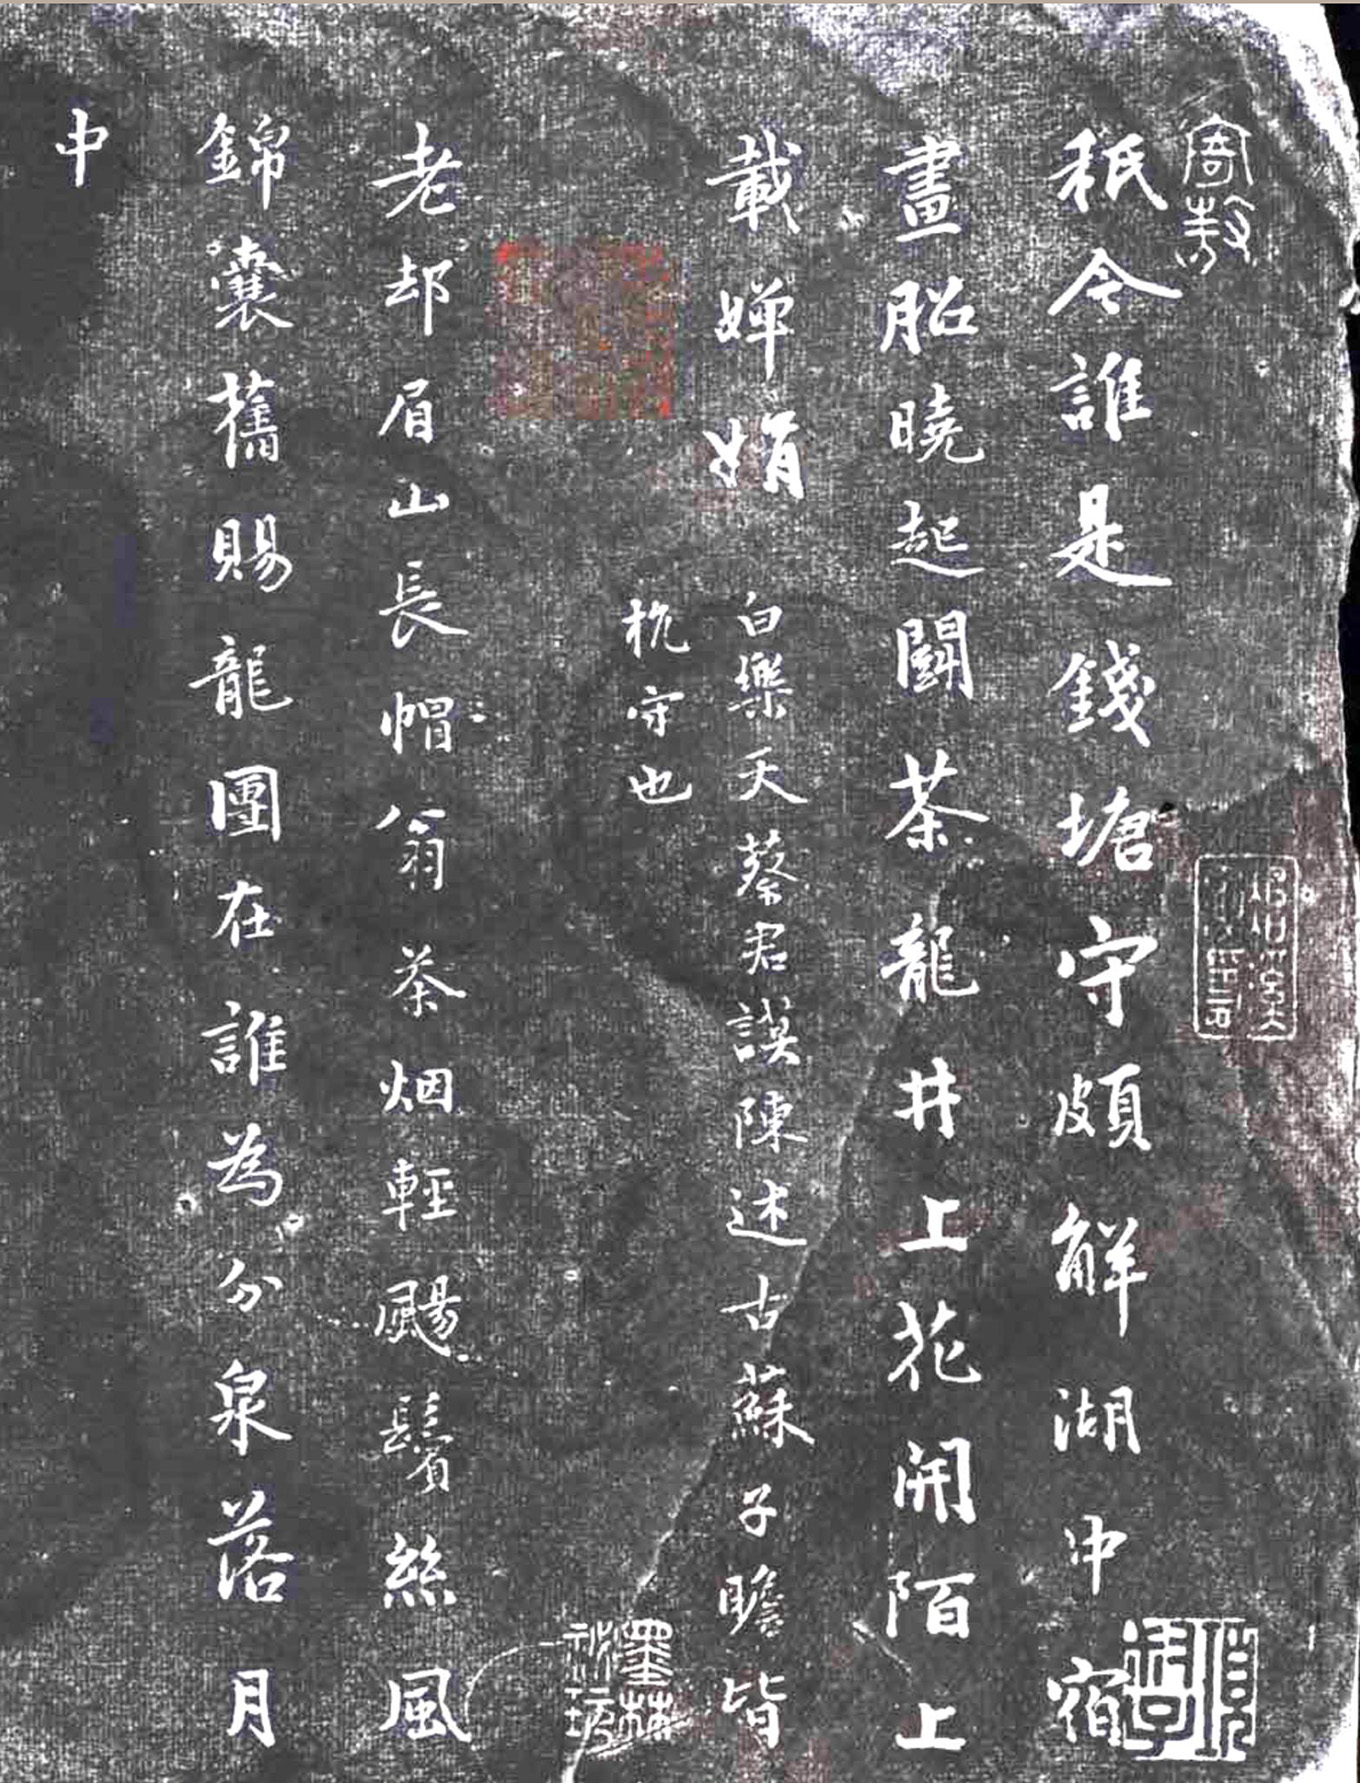 秖令誰是錢塘守頗解湖中宿
畫船曉起鬬茶龍井上花開陌上
載嬋娟
白樂天蔡君謨陳述古蘇子瞻皆
杭守也
老却眉山長帽翁茶烟輕颺鬢絲風
錦囊舊賜龍團在誰為分泉落月
中
墨林祕玩